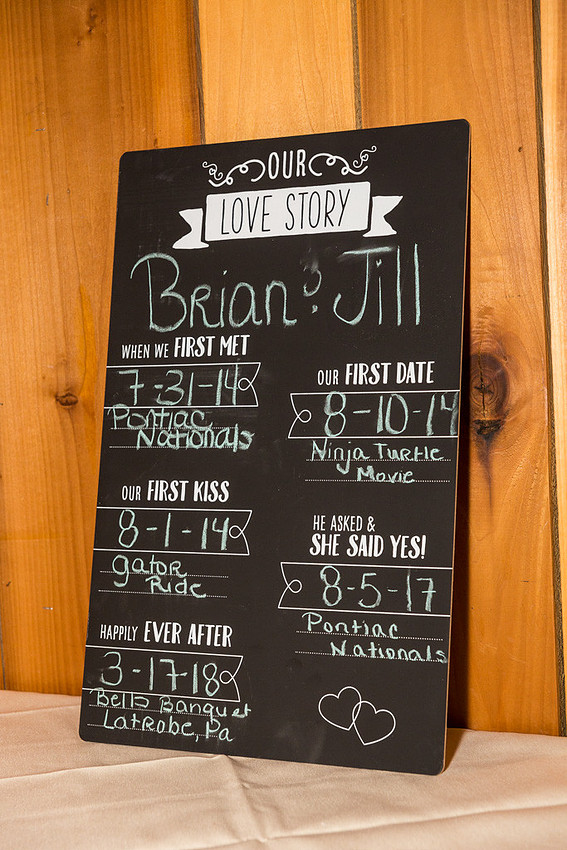 OUR
LOVE STORY
Brian & Jill
WHEN WE FIRST MET
7-31-14
Pontiac
Nationals
OUR FIRST DATE
8-10-14
Ninja Turtle
Movie
OUR FIRST KISS
8-1-14
gator
Ride
HE ASKED &
SHE SAID YES!
8-5-17
Pontiac
Nationals
HAPPILY EVER AFTER
3-17-18
Bells Banquet
Latrobe, Pa